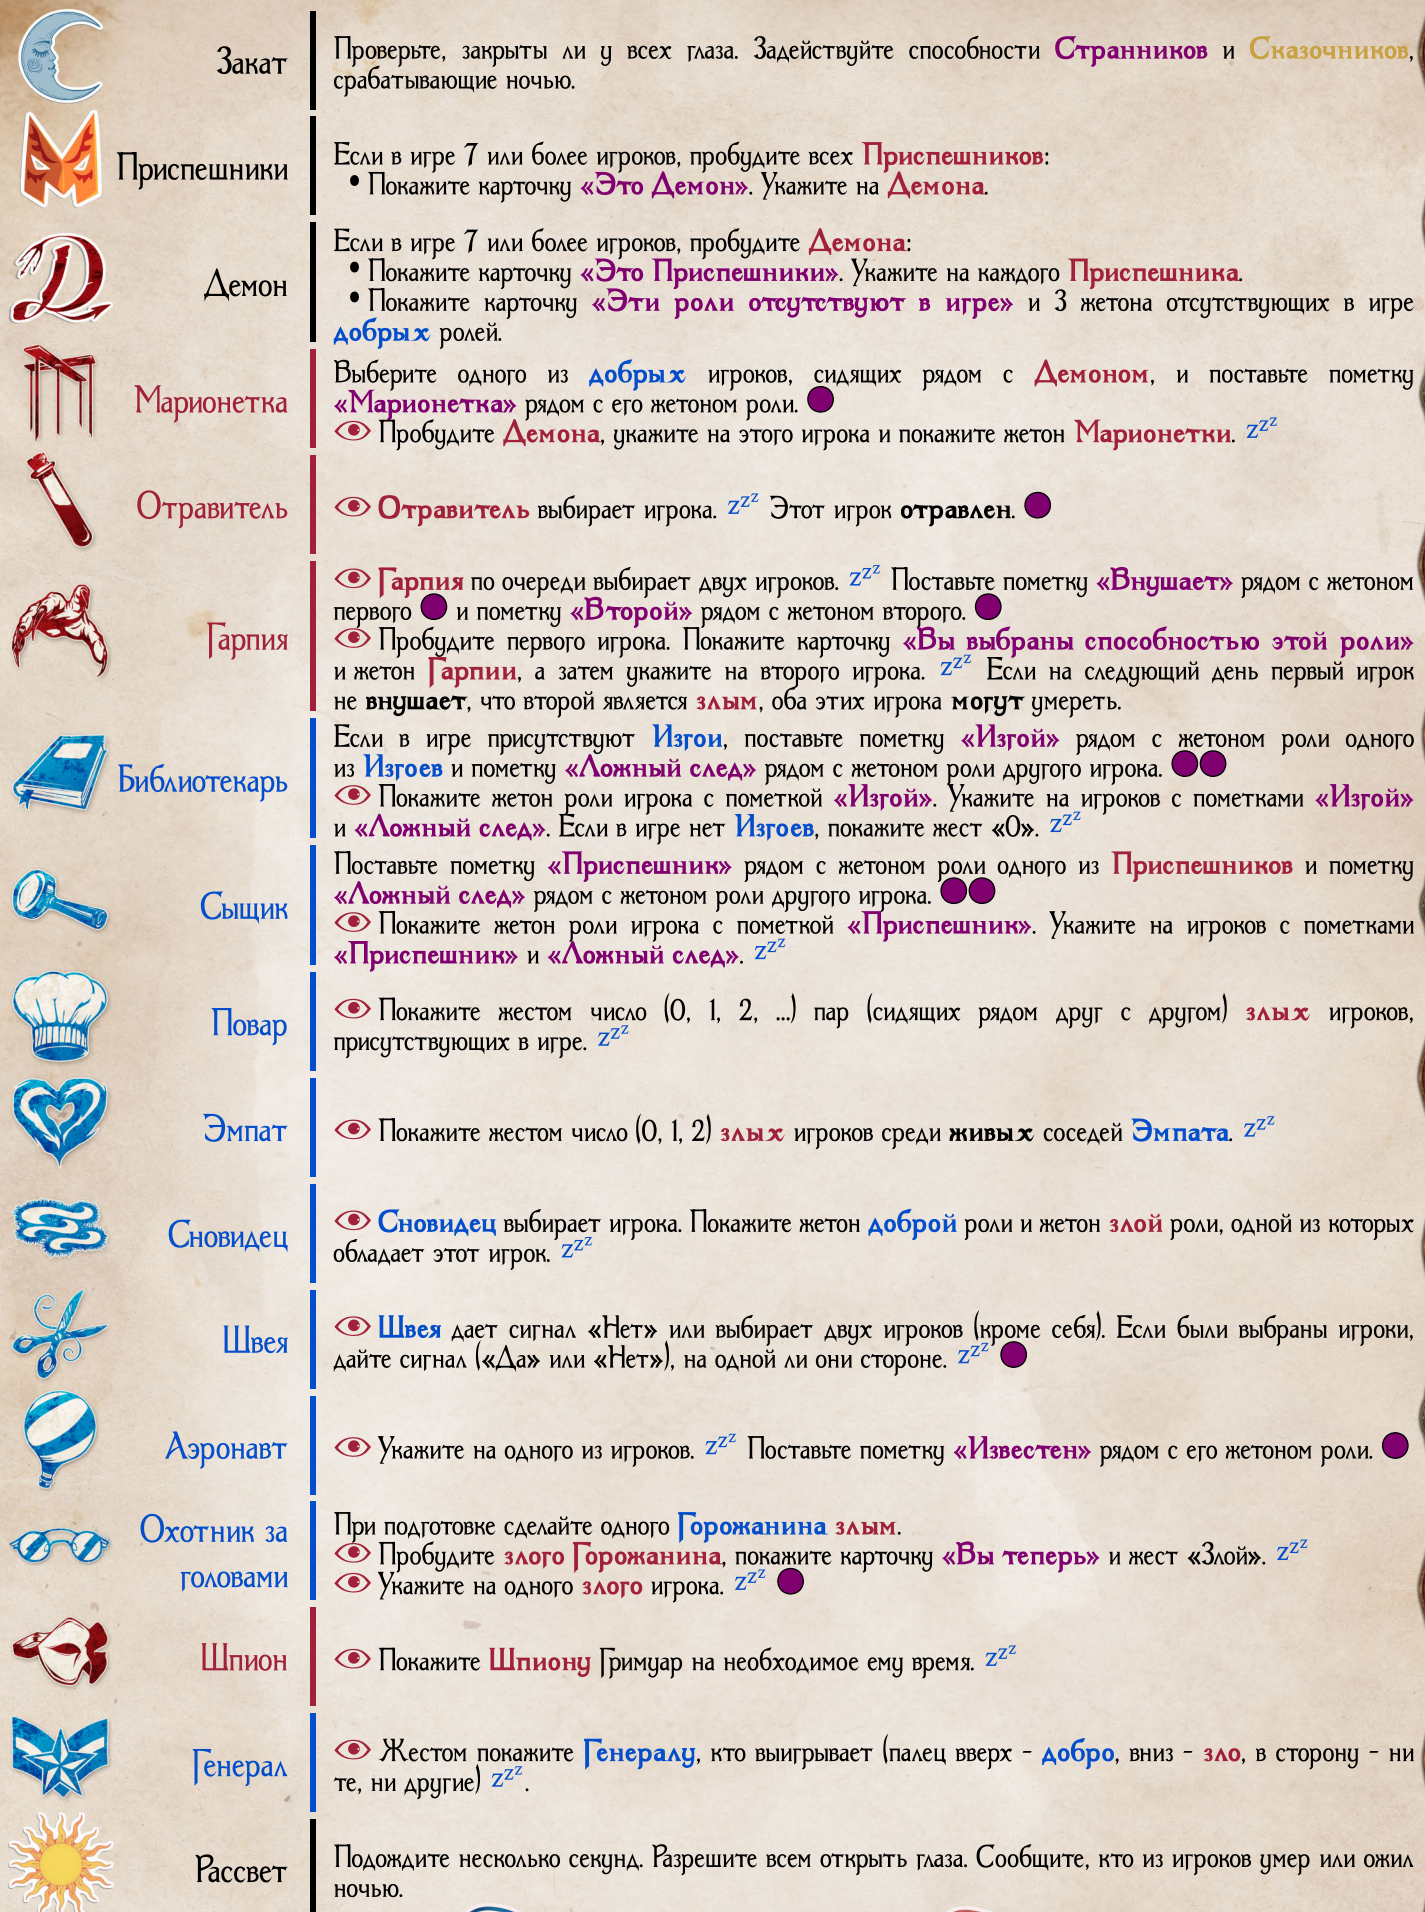 Закат
Проверьте, закрыты ли у всех глаза. Задействуйте способности Странников и Сказочников,
срабатывающие ночью.
Приспешники
Если в игре 7 или более игроков, пробудите всех Приспешников:
• Покажите карточку «Это Демон». Укажите на Демона.
Демон
Если в игре 7 или более игроков, пробудите Демона:
• Покажите карточку «Это Приспешники». Укажите на каждого Приспешника.
• Покажите карточку «Эти роли отсутствуют в игре» и 3 жетона отсутствующих в игре
добрых ролей.
Марионетка
Выберите одного из добрых игроков, сидящих рядом с Демоном, и поставьте пометку
«Марионетка» рядом с его жетоном роли.
Пробудите Демона, укажите на этого игрока и покажите жетон Марионетки. zzz
Отравитель
Отравитель выбирает игрока. zzz Этот игрок отравлен.
Гарпия
Гарпия по очереди выбирает двух игроков. zzz Поставьте пометку «Внушает» рядом с жетоном
первого и пометку «Второй» рядом с жетоном второго.
Пробудите первого игрока. Покажите карточку «Вы выбраны способностью этой роли»
и жетон Гарпии, а затем укажите на второго игрока. zzz Если на следующий день первый игрок
не внушает, что второй является злым, оба этих игрока могут умереть.
Библиотекарь
Если в игре присутствуют Изгои, поставьте пометку «Изгой» рядом с жетоном роли одного
из Изгоев и пометку «Ложный след» рядом с жетоном роли другого игрока.
Покажите жетон роли игрока с пометкой «Изгой». Укажите на игроков с пометками «Изгой»
и «Ложный след». Если в игре нет Изгоев, покажите жест «0». zzz
Сыщик
Поставьте пометку «Приспешник» рядом с жетоном роли одного из Приспешников и пометку
«Ложный след» рядом с жетоном роли другого игрока.
Покажите жетон роли игрока с пометкой «Приспешник». Укажите на игроков с пометками
«Приспешник» и «Ложный след». zzz
Повар
Покажите жестом число (0, 1, 2, ...) пар (сидящих рядом друг с другом) злых игроков,
присутствующих в игре. zzz
Эмпат
Покажите жестом число (0, 1, 2) злых игроков среди живых соседей Эмпата. zzz
Сновидец
Сновидец выбирает игрока. Покажите жетон доброй роли и жетон злой роли, одной из которых
обладает этот игрок. zzz
Швея
Швея дает сигнал «Нет» или выбирает двух игроков (кроме себя). Если были выбраны игроки,
дайте сигнал («Да» или «Нет»), на одной ли они стороне. zzz
Аэронавт
Укажите на одного из игроков. zzz Поставьте пометку «Известен» рядом с его жетоном роли.
Охотник за
головами
При подготовке сделайте одного Горожанина злым.
Пробудите злого Горожанина, покажите карточку «Вы теперь» и жест «Злой». zzz
Укажите на одного злого игрока. zzz
Шпион
Покажите Шпиону Гримуар на необходимое ему время. zzz
Генерал
Жестом покажите Генералу, кто выигрывает (палец вверх - добро, вниз - зло, в сторону - ни
те, ни другие) zzz.
Рассвет
Подождите несколько секунд. Разрешите всем открыть глаза. Сообщите, кто из игроков умер или ожил
ночью.